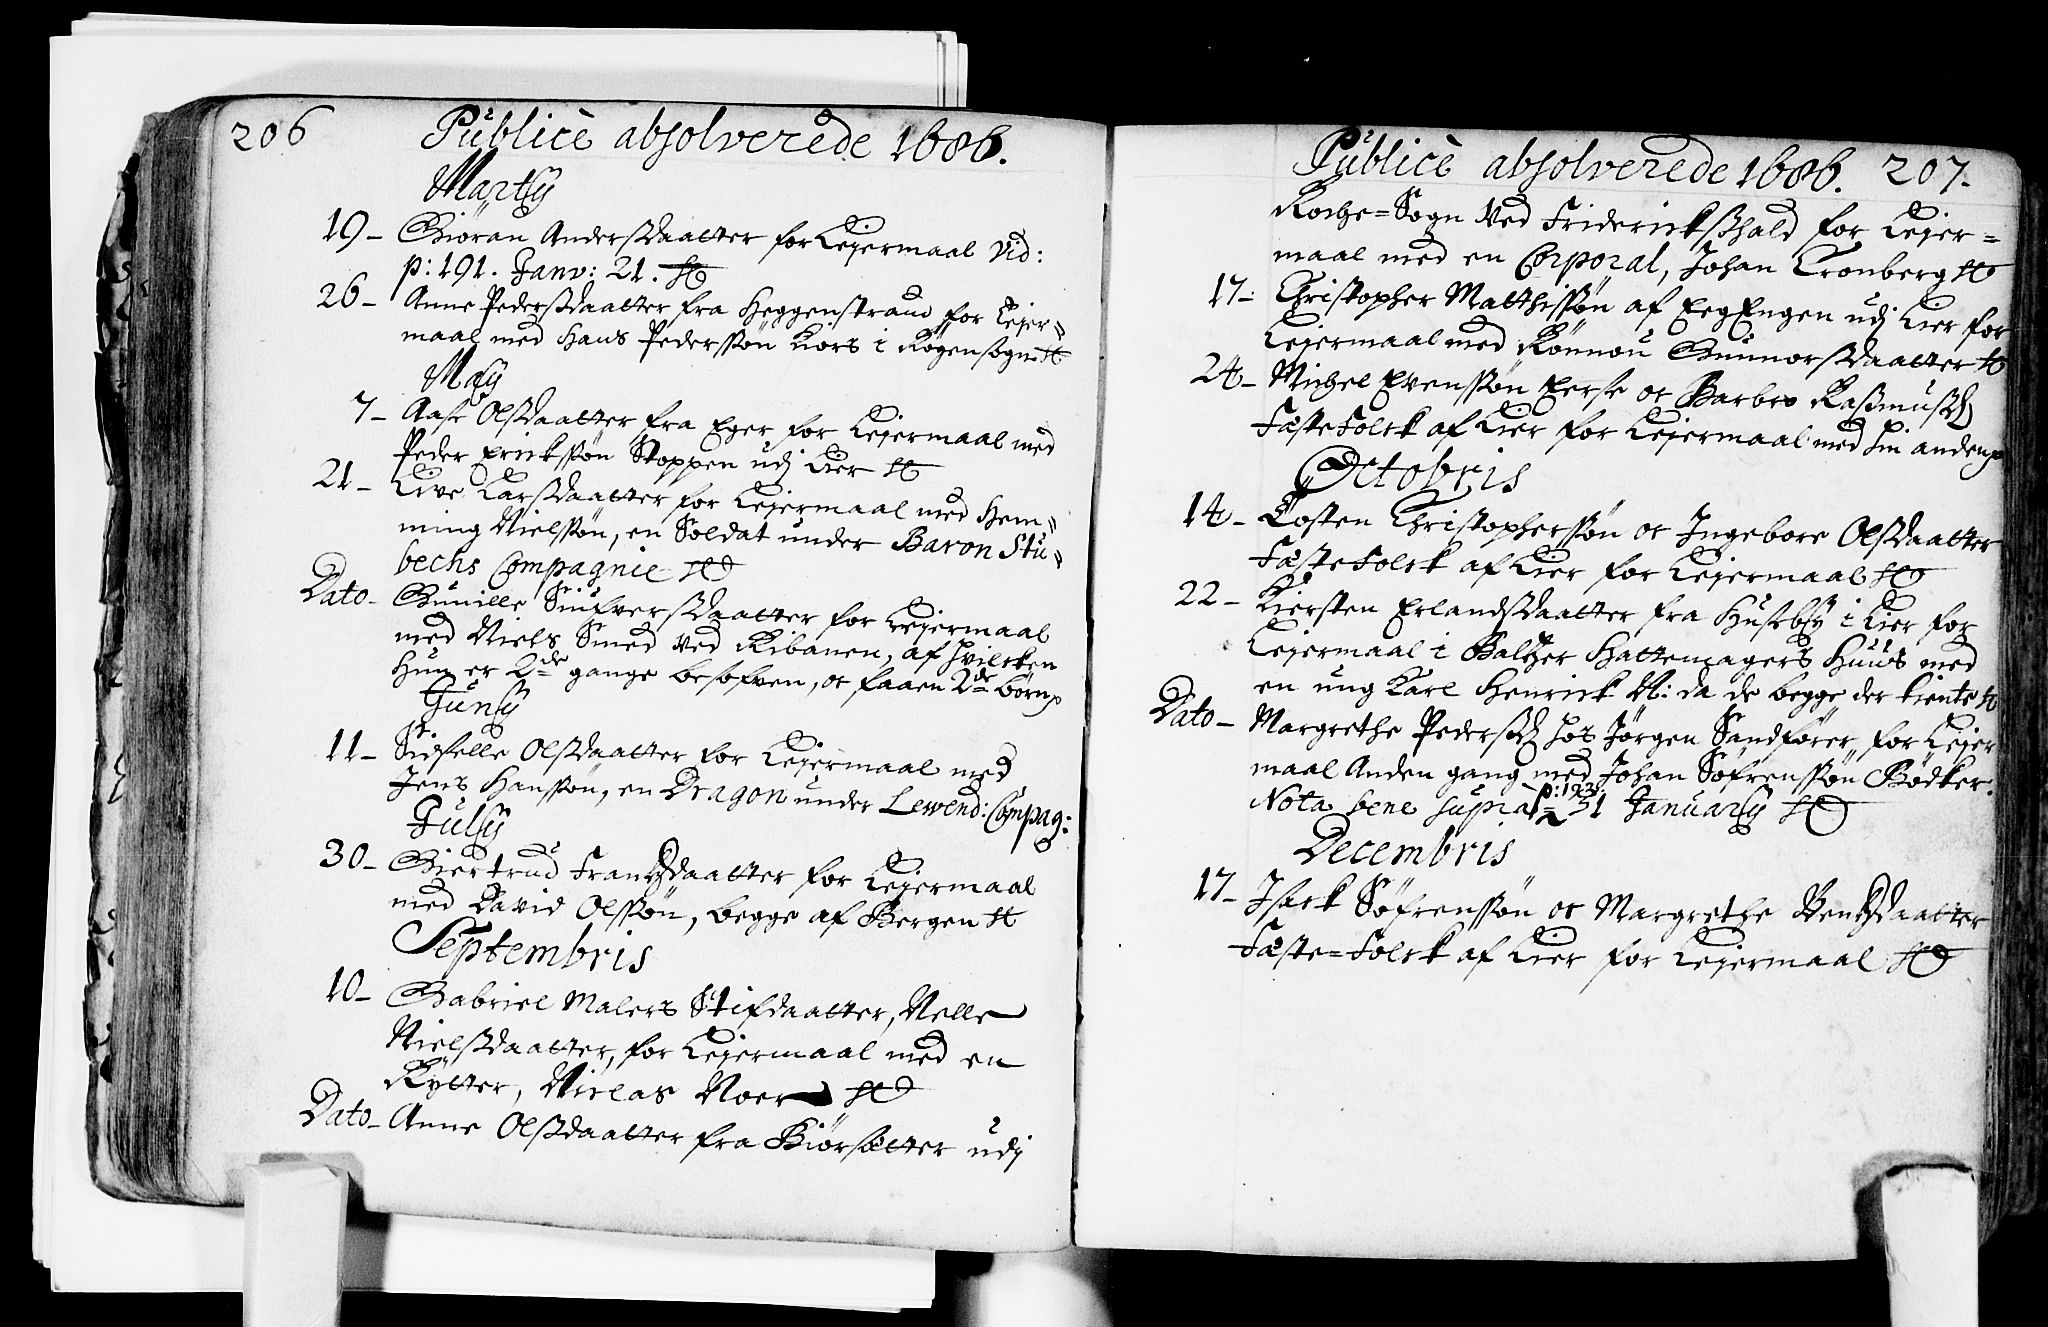 206 Publicè absolverede 1686.
Martij
19 - Giøran Andersdaatter for Leiermaal Vid:
p: 191. Janv: 21.
26 - Anne Pedersdaatter fra Heggenstrand for Leier=
maal med Hans Pederssøn Kiørs i Røgensogn
Maij
7 - Aase Olsdaatter fra Eger for Leiermaal med
Peder Erickssøn Stoppen udj Lier
21 - Live Larsdaatter for Leiermaal med Hem=
ming Nielssøn, en Soldat under Baron Stu=
bechs Compagnie
Dato - Gunille Siufversdaatter for Leiermaal
med Niels Smed ved Ribanen, af hvilcken
Hun er 2de gange besofven, oc faaen 2de børn
Junij
11 - Sidselle Olsdaatter for Leiermaal med
Jens Hanssøn, en Dragon under Lewend: Compag:
Julij
30 - Giertrud Frantzdaatter for Leiermaal
med David Olssøn, begge af Bergen
Septembris
10 - Gabriel Malers Stifdaatter, Nelle
Nielsdaatter, for Leiermaal med en
Rÿtter, Niclas Noer
Dato - Anne Olsdaatter fra Kiørsætter udj
Publicè absolverede 1686. 207.
Rochge=Sogn ved Friderickshald for Leier=
maal med en Corporal, Johan Cronberg
17 - Christopher Matthissøn af EegEngen udj Lier for
Leiermaal med Rönnou Gunnorsdaatter
24 - Michel Evenssøn Eerse oc Barbro Rasmusd
FæsteFolck af Lier for Leiermaal med hin anden
Octobris
14 - Tosten Christopherssøn oc Ingebore Olsdaatter
FæsteFolck af Lier for Leiermaal
22 - Kiersten Erlandsdaatter fra Husebÿ i Lier for
Leiermaal i Baltzer Hattemagers Huus med
en ung Karl Henrick N: da de begge der tiente
Dato - Margrethe Pedersd hos Jørgen Sandfører for Leier
maal Anden gang med Johan Søfrenssøn Bödker.
Nota bene supra p: 193. 31 Januarij
Decembris
17 - Isack Søfrenssøn oc Margrethe Bentzdaatter
Fæste=Folck af Lier for Leiermaal